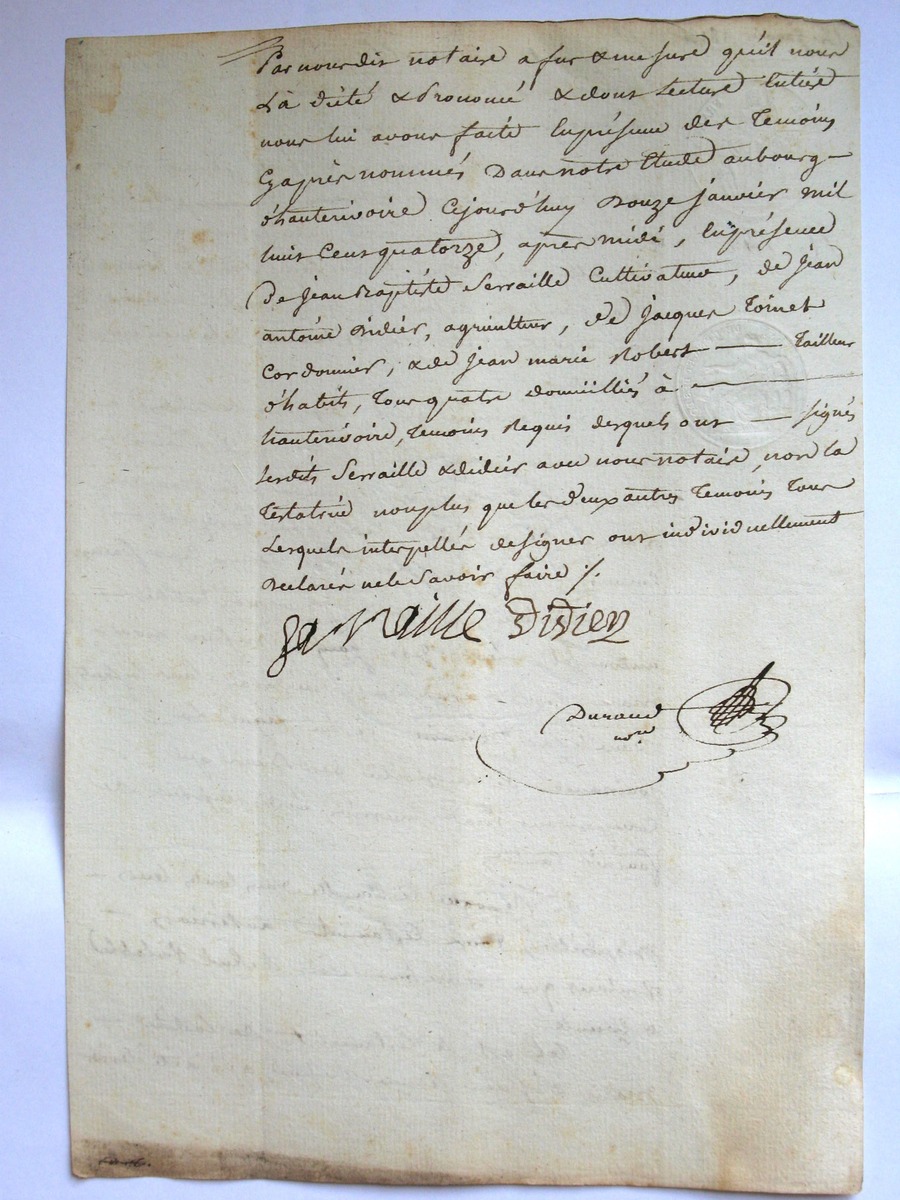 Par nousdit notaire a fur & mesure qu'il nous
La dicté & Prononcé & dont Lecture Entière
nous lui avons faitte Enprésence des Temoins
Cyaprès nommés Dans notre Etude aubourg
d'hauterivoire Cejourd'huy Douze janvier mil
huit Cent quatorze, après midi, Enprésence
De jean Baptiste Serraille Cultivateur, de jean
antoine Didier, agriculteur, de jacques Toinet
Cordonnier, & de jean marie Robert — Tailleur
d'habits, Tous quatre domiciliés à —
hauterivoire, Temoins Requis desquels ont — signés
Lesdits Serraille & didier avec nous notaire, non la
Testatrice nonplus que les deux autres Temoins Tous
Lesquels interpellés designer ont individuellement
Déclarés nele Savoir faire ./.
Serraille Didier
Durand
nore